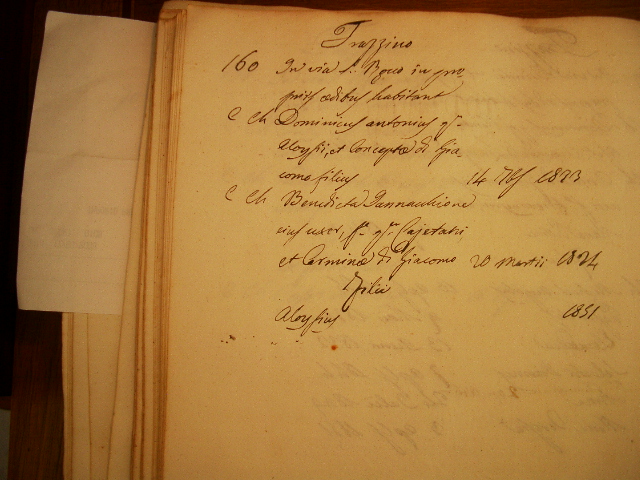 Trazzino
160 In via S. Roco in pro
priis ædibus habitant
C Ch Dominicus antonius qm
Aloysii, et Conceptæ di Gia
como filius 14 7bs 1823
C Ch Benedicta Iannacchione
eius uxor, fa. qm. Cajetani,
et Carminæ di Giacomo 20 Martii 1824
Filii
Aloysius 1851